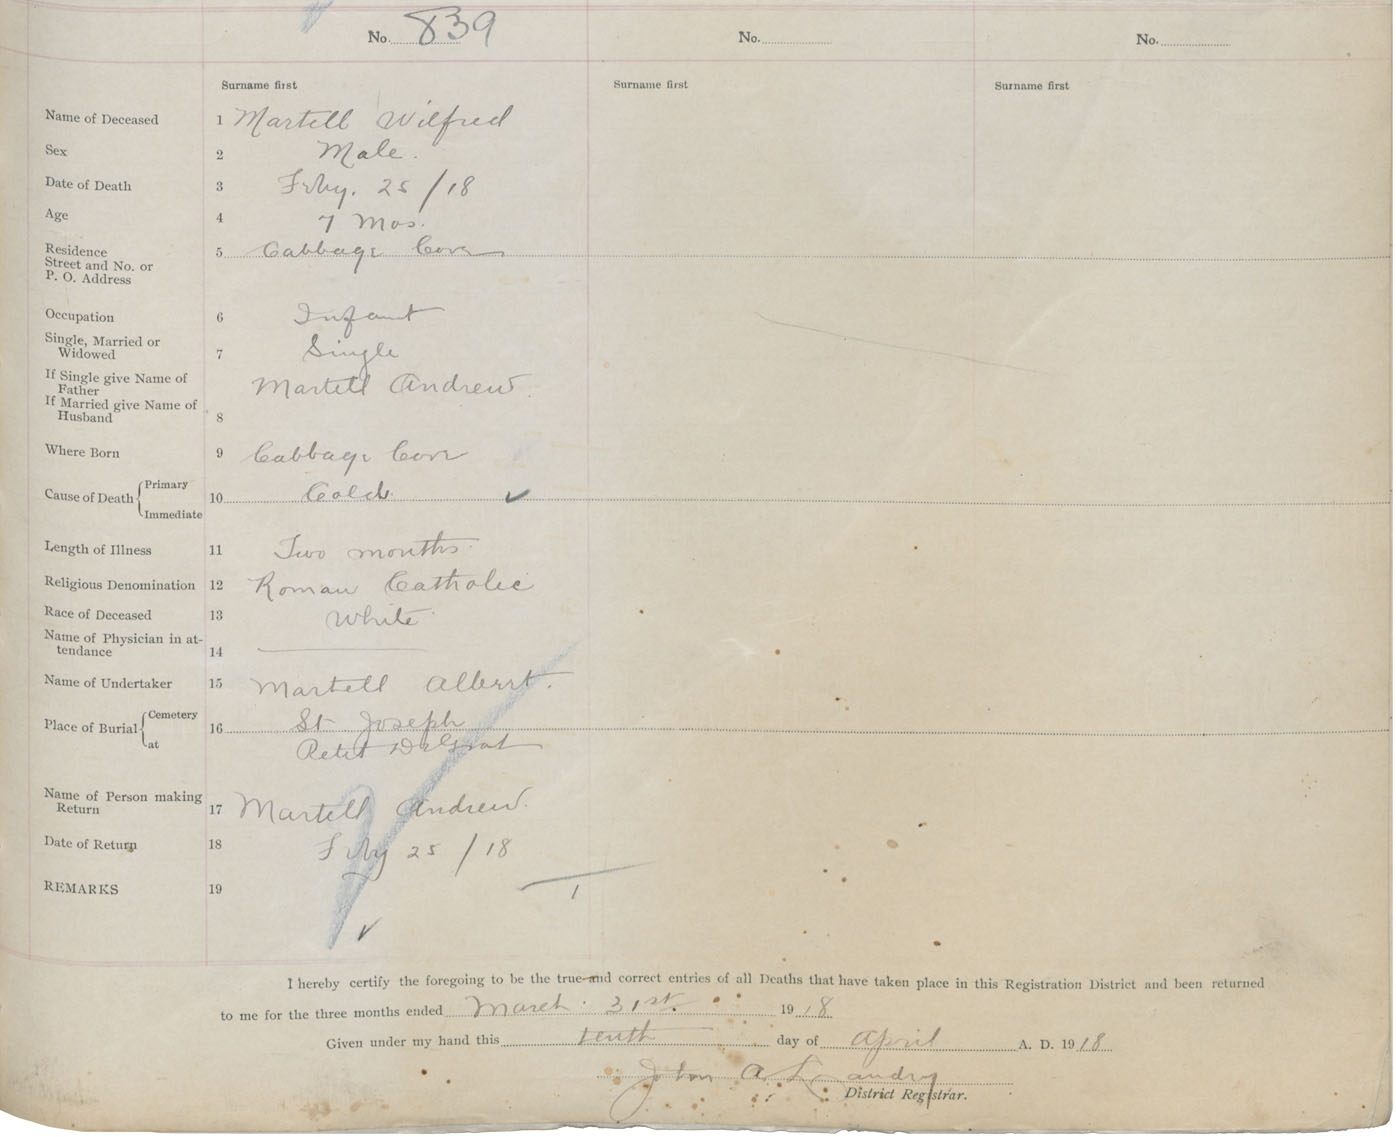 No. 839 No. No.
Surname first Surname first Surname first
Name of Deceased 1 Martell Wilfred
Sex 2 Male.
Date of Death 3 Feby. 25 / 18
Age 4 7 Mos.
Residence 5 Cabbage Cove
Street and No. or
P. O. Address
Occupation 6 Infant
Single, Married or
Widowed 7 Single
If Single give Name of
Father Martell Andrew.
If Married give Name of
Husband 8
Where Born 9 Cabbage Cove
Cause of Death Primary
10 Cold
Immediate
Length of Illness 11 Two months.
Religious Denomination 12 Roman Catholic
Race of Deceased 13 White
Name of Physician in at-
tendance 14
Name of Undertaker 15 Martell Albert.
Place of Burial Cemetery 16 St Joseph
at Petit DeGrat
Name of Person making
Return 17 Martell Andrew.
Date of Return 18 Feby 25 / 18
REMARKS 19
1
I hereby certify the foregoing to be the true and correct entries of all Deaths that have taken place in this Registration District and been returned
to me for the three months ended March 31st. 1918
Given under my hand this tenth day of April A. D. 1918
John A. Landry
District Registrar.